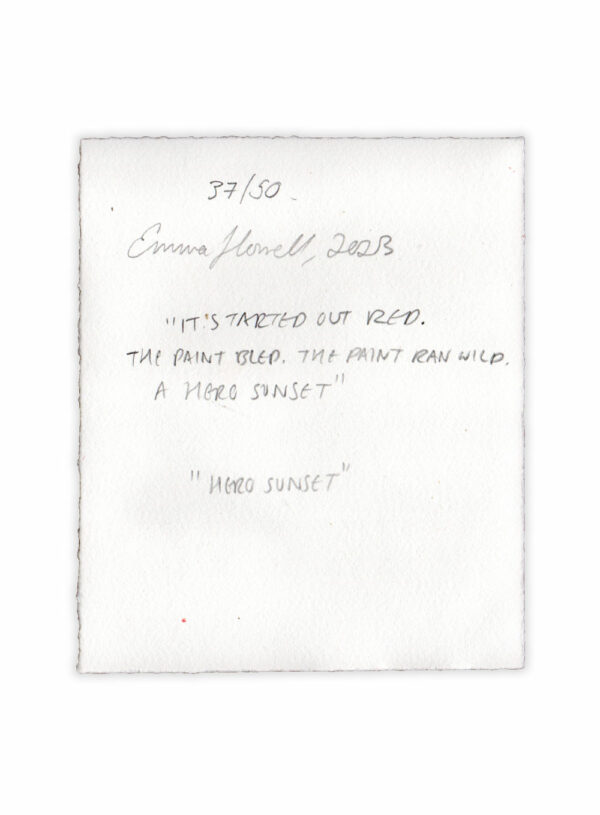 37/50
Emma Howell, 2023
"IT'STARTED OUT RED.
THE PAINT BLED. THE PAINT RAN WILD.
A HERO SUNSET"
"HERO SUNSET"